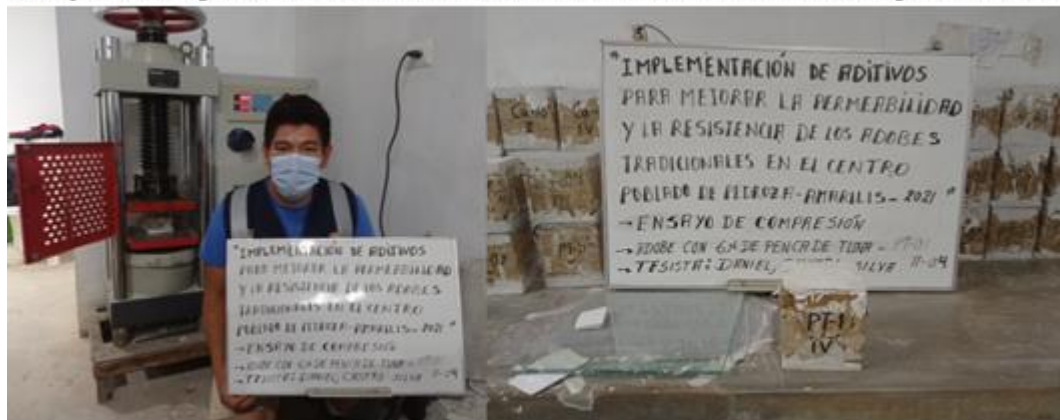 "IMPLEMENTACIÓN DE ADITIVOS
PARA MEJORAR LA PERMEABILIDAD
Y LA RESISTENCIA DE LOS ADOBES
TRADICIONALES EN EL CENTRO
POBLADO DE PITROZA-AMARILIS-2021"
→ENSAYO DE COMPRESIÓN
→ADOBE CON GA DE PENCA DE TUNA
→TESISTA: DANIEL, CASTRO SILVA 11-04
"IMPLEMENTACIÓN DE ADITIVOS
PARA MEJORAR LA PERMEABILIDAD
Y LA RESISTENCIA DE LOS ADOBES
TRADICIONALES EN EL CENTRO
POBLADO DE PITROZA-AMARILIS-2021"
→ENSAYO DE COMPRESIÓN
→ADOBE CON GA DE PENCA DE TUNA - PT-01
→TESISTA: DANIEL, SILVA 11-04
PT-1
IV